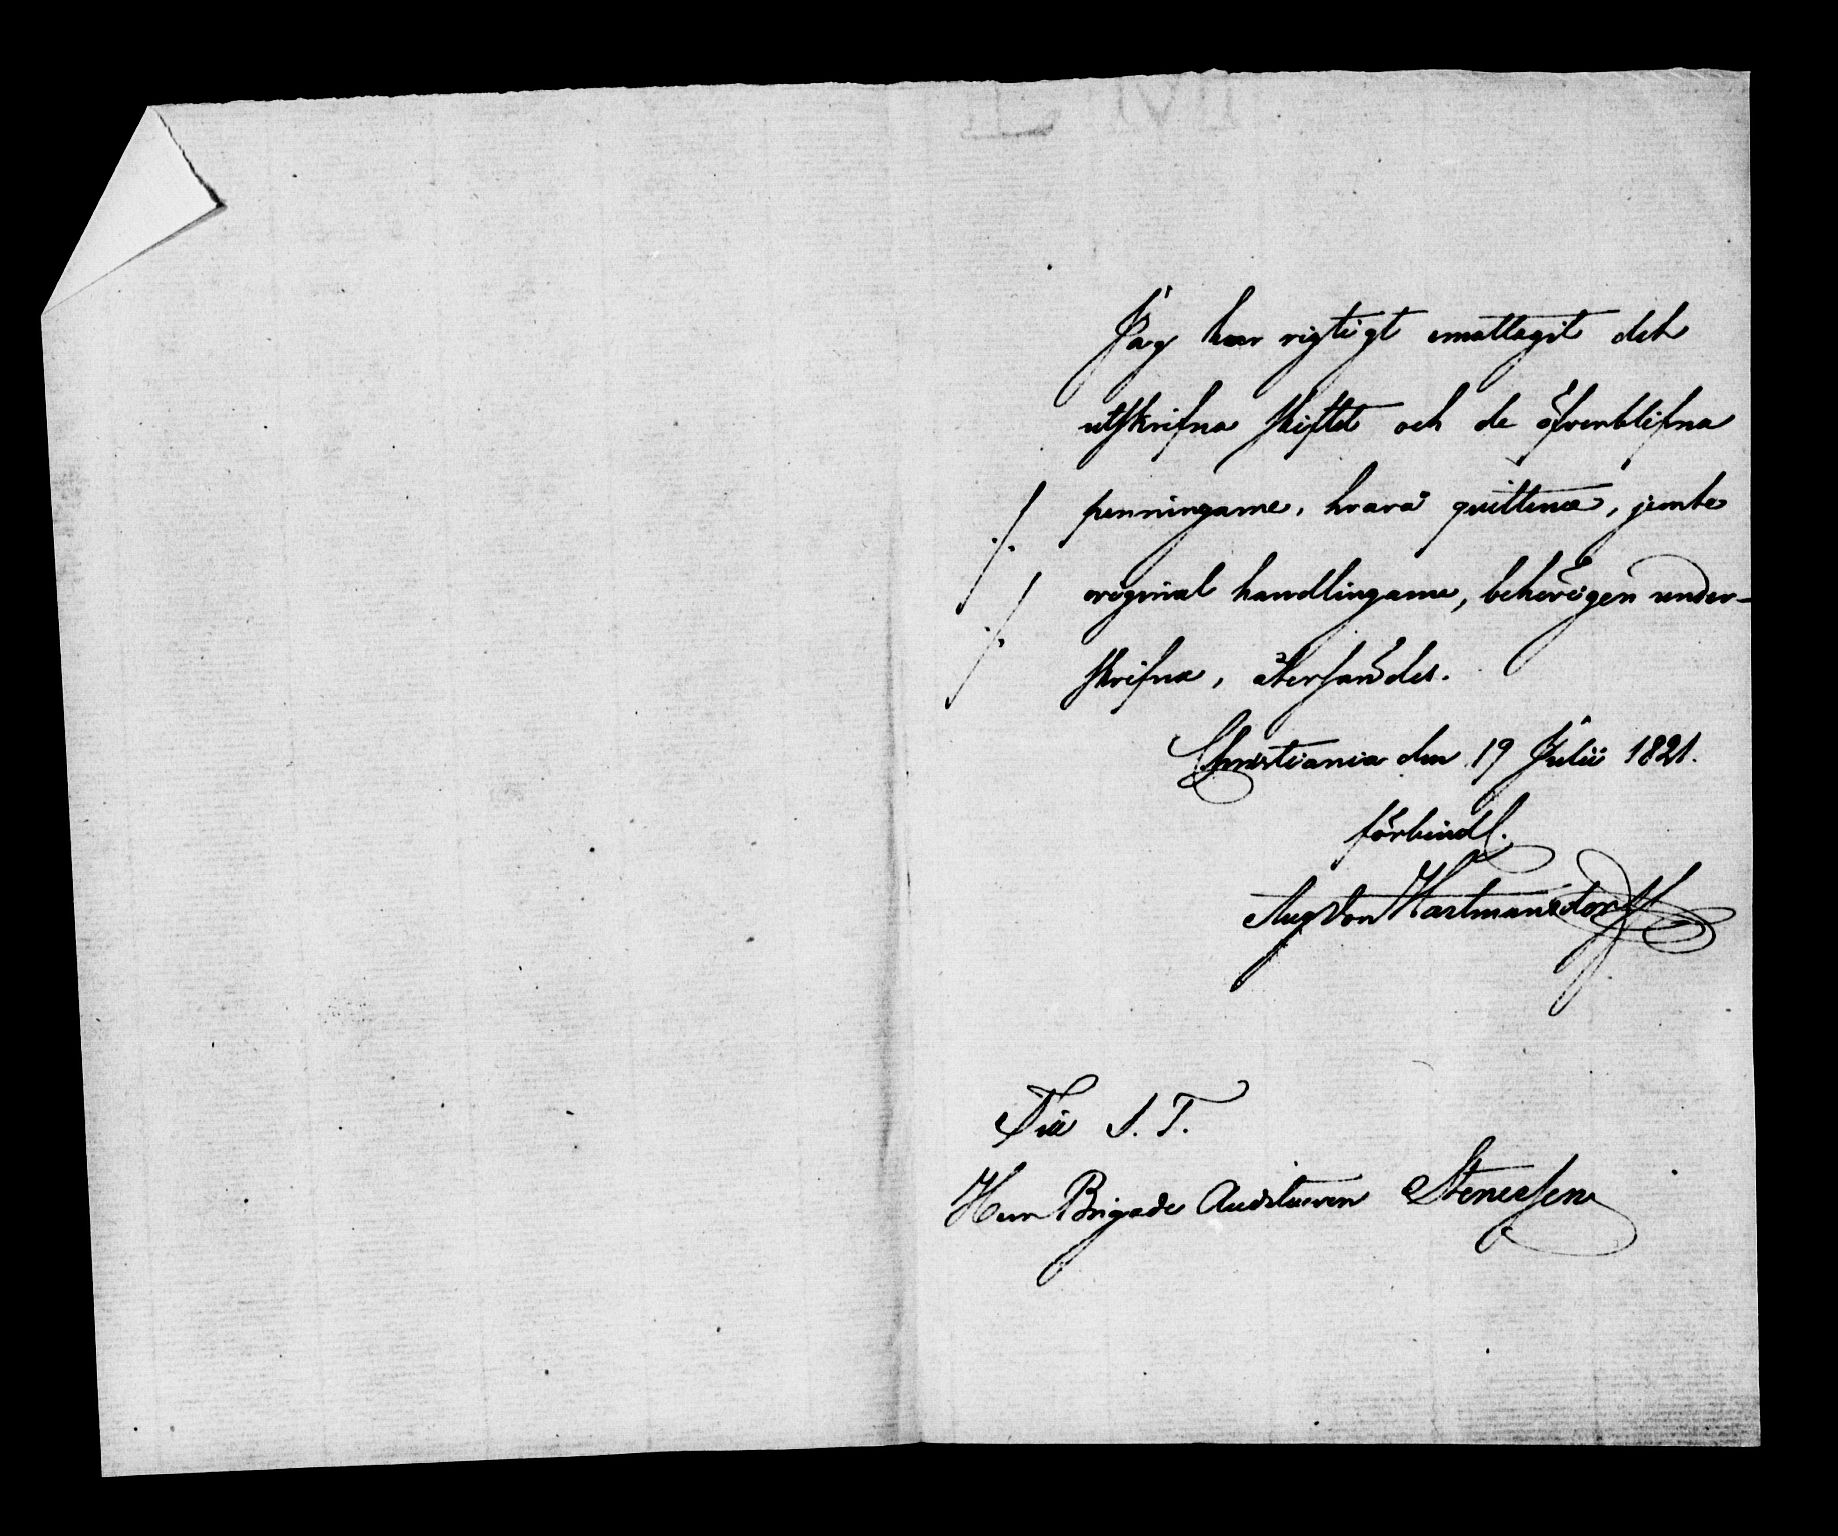 Jag har rigtigt emottagit det
utskrifna skiftet och de öfverblifna
./. penningarne, hvarå quittence, jemte
./. original handlingarne, behörigen under-
skrifna, återsändes.
Christiania den 19 Julii 1821.
förbindl.
Aug von Hartmansdorff
Till S. T.
Herr Brigade Auditeuren Stenersen